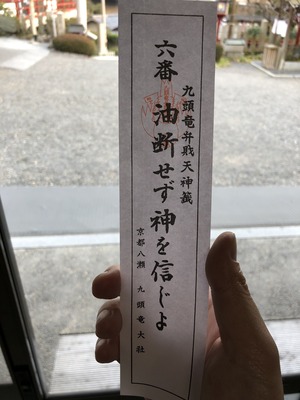 九頭竜弁戝天神籤
六番 油断せず神を信じよ
京都八瀬 九頭竜大社